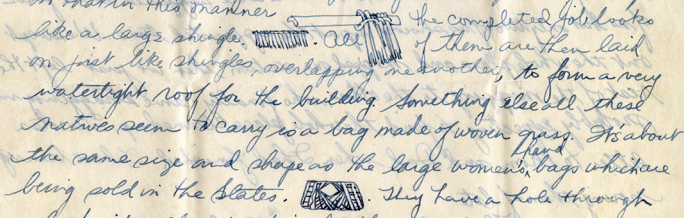 in this manner the completed job looks
like a large shingle. All of them are then laid
on just like shingles, overlapping one another, to form a very
watertight roof for the building. Something else all these
natives seem to carry is a bag made of woven grass. It's about
the same size and shape as the large women's hand bags which are
being sold in the States. They have a hole through